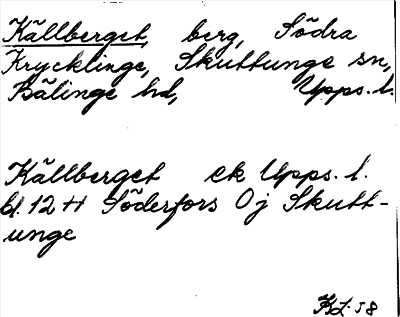 Källberget, berg, Södra
Krycklinge, Skuttunge sn,
Bälinge hd, Upps. l.
Källberget ek Upps. l.
bl. 12 H Söderfors Oj Skutt-
unge
KL. 58